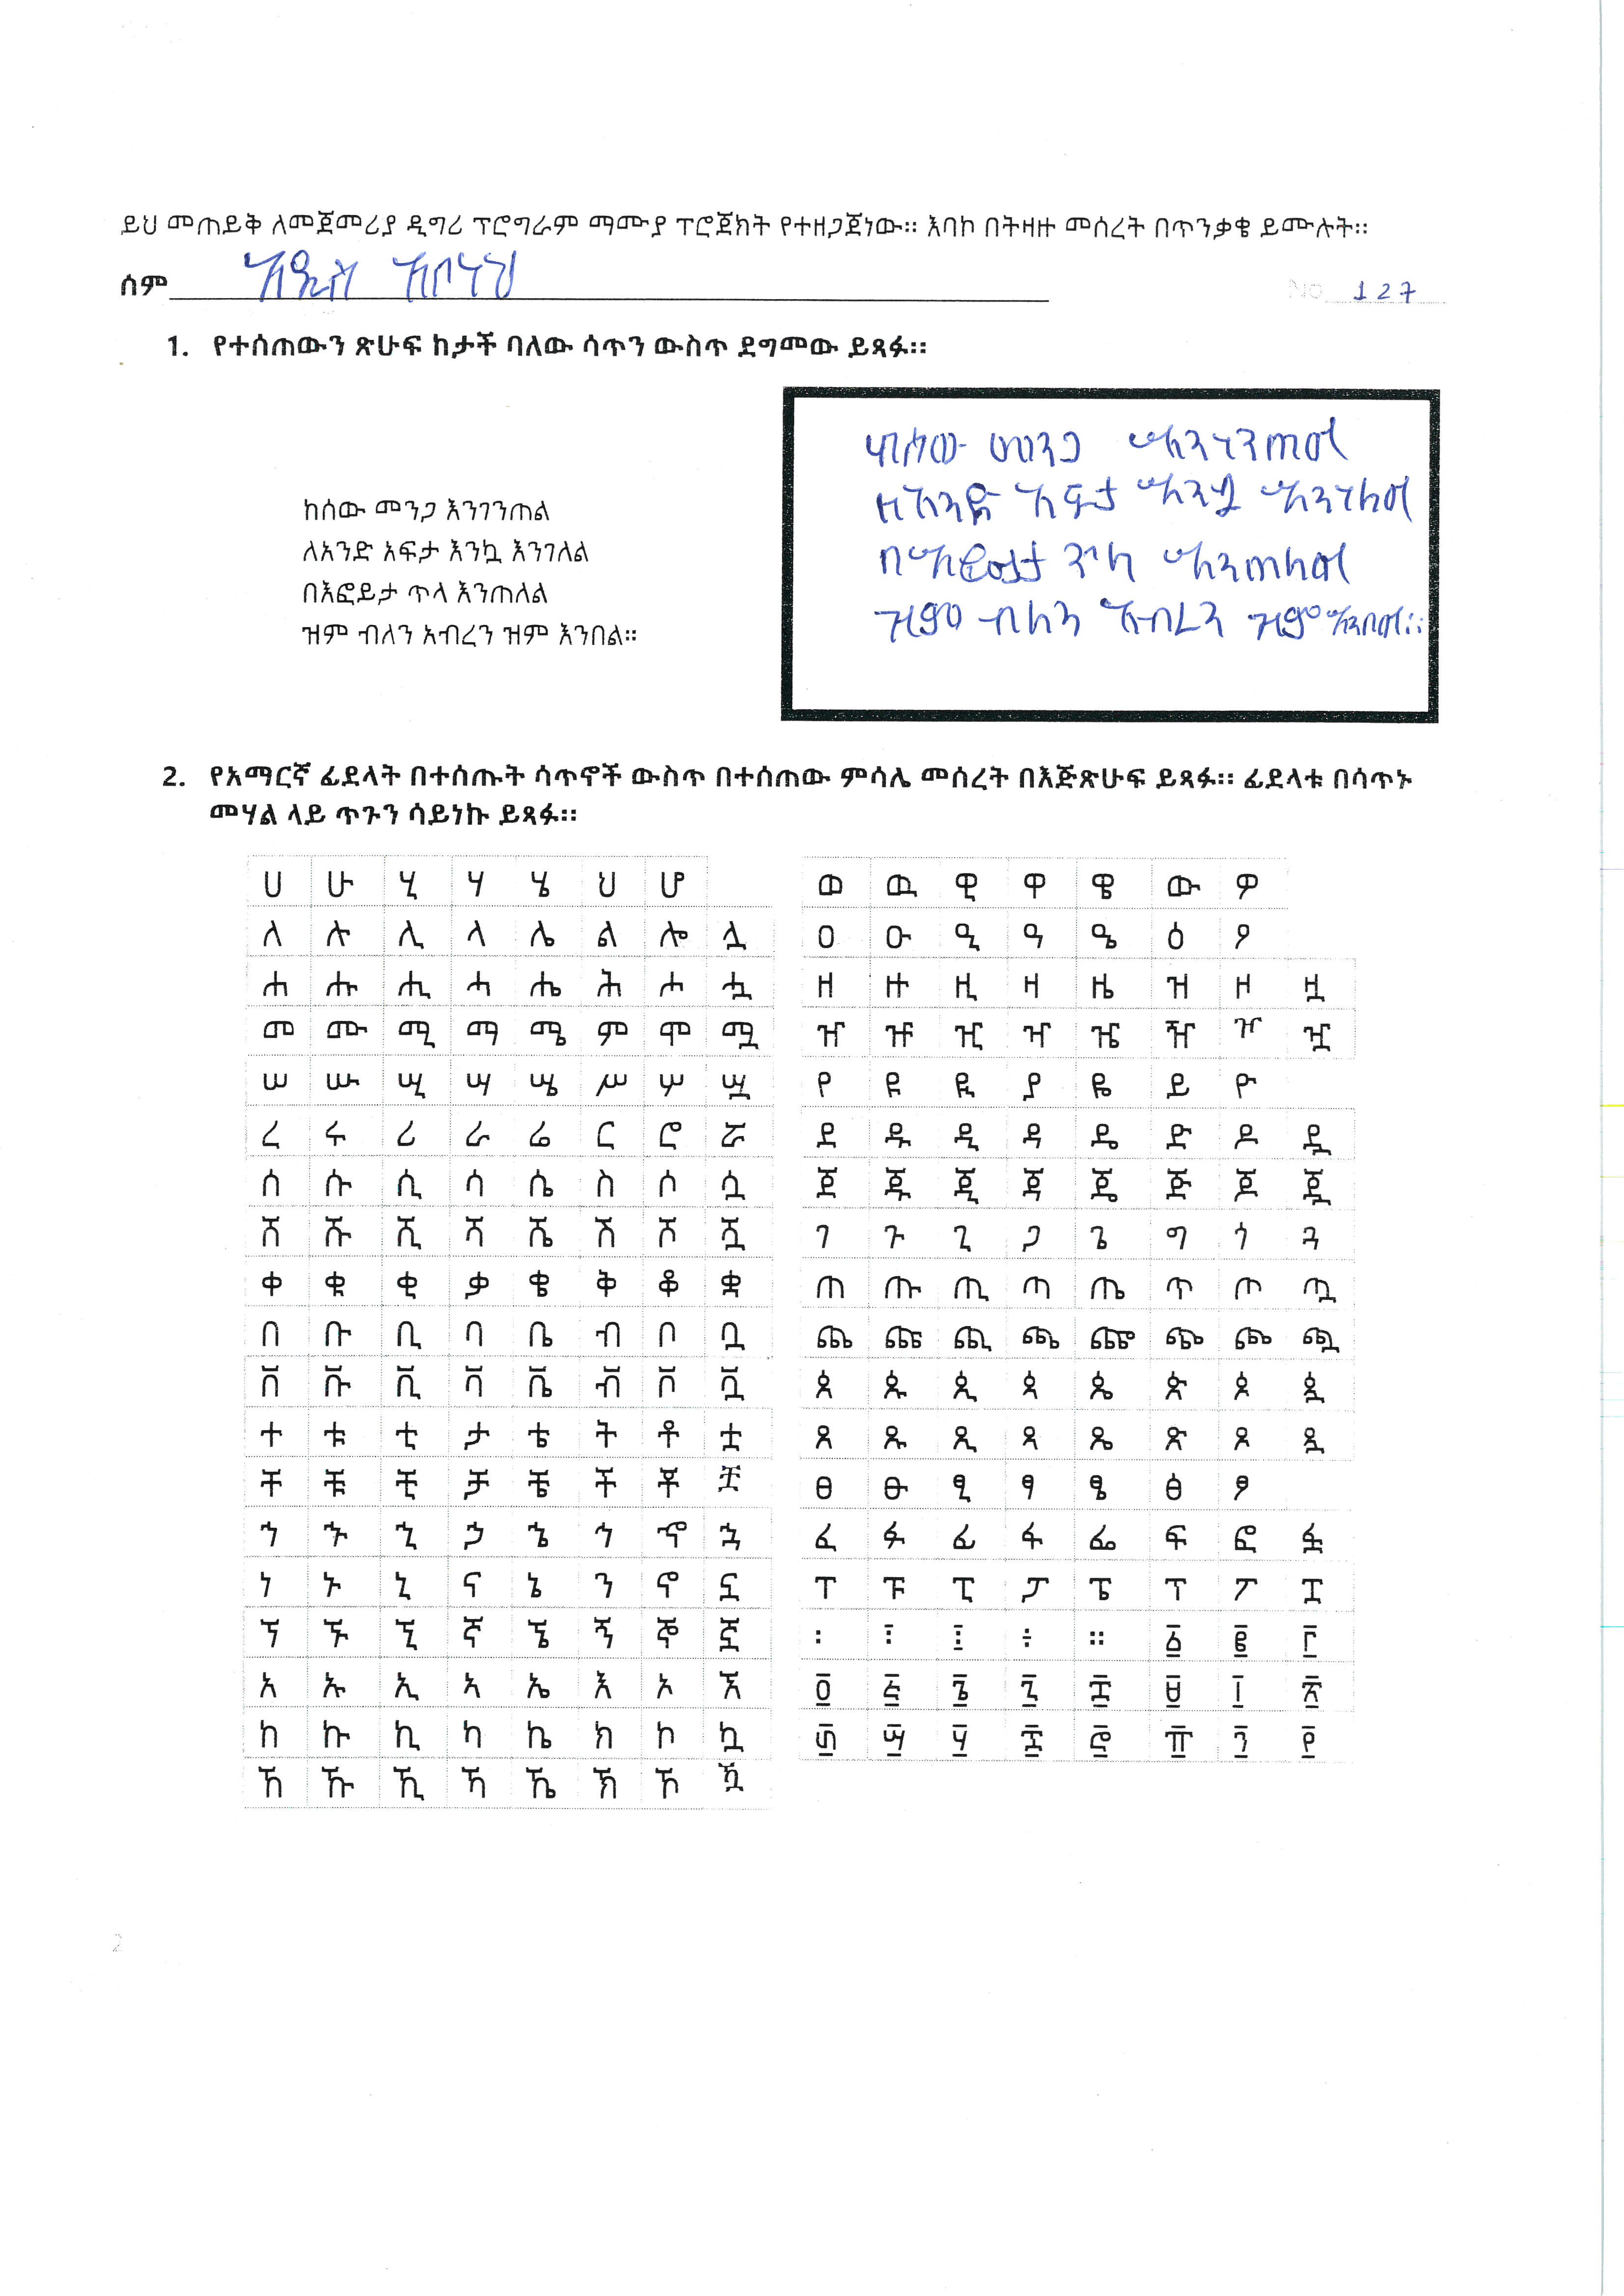 ይህ መጠይቅ ለመጀመሪያ ዲግሪ ፕሮግራም ማሙያ ፕሮጀክት የተዘጋጀነው። እባኮ በትዛዙ መሰረት በጥንቃቄ ይሙሉት።
ስም አዲስ አበነህ
No 127
1. የተሰጠውን ጽሁፍ ከታች ባለው ሳጥን ውስጥ ደግመው ይጻፉ።
ከሰው መንጋ እንገንጠል
ለአንድ አፍታ እንኳ እንገለል
በእፎይታ ጥላ እንጠለል
ዝም ብለን አብረን ዝም እንበል።
ከሰው መንጋ እንገንጠል
ለአንድ አፍታ እንኳ እንገለል
በእፎይታ ጥላ እንጠለል
ዝም ብለን አብረን ዝም እንበል።
2. የአማርኛ ፊደላት በተሰጡት ሳጥኖች ውስጥ በተሰጠው ምሳሌ መሰረት በእጅጽሁፍ ይጻፉ። ፊደላቱ በሳጥኑ
መሃል ላይ ጥጉን ሳይነኩ ይጻፉ።
ሀ ሁ ሂ ሃ ሄ ህ ሆ
ለ ሉ ሊ ላ ሌ ል ሎ ሏ
ሐ ሑ ሒ ሓ ሔ ሕ ሖ ሗ
መ ሙ ሚ ማ ሜ ም ሞ ሟ
ሠ ሡ ሢ ሣ ሤ ሥ ሦ ሧ
ረ ሩ ሪ ራ ሬ ር ሮ ሯ
ሰ ሱ ሲ ሳ ሴ ስ ሶ ሷ
ሸ ሹ ሺ ሻ ሼ ሽ ሾ ሿ
ቀ ቁ ቂ ቃ ቄ ቅ ቆ ቋ
በ ቡ ቢ ባ ቤ ብ ቦ ቧ
ቨ ቩ ቪ ቫ ቬ ቭ ቮ ቯ
ተ ቱ ቲ ታ ቴ ት ቶ ቷ
ቸ ቹ ቺ ቻ ቼ ች ቾ ቿ
ኀ ኁ ኂ ኃ ኄ ኅ ኆ ኋ
ነ ኑ ኒ ና ኔ ን ኖ ኗ
ኘ ኙ ኚ ኛ ኜ ኝ ኞ ኟ
አ ኡ ኢ ኣ ኤ እ ኦ ኧ
ከ ኩ ኪ ካ ኬ ክ ኮ ኳ
ኸ ኹ ኺ ኻ ኼ ኽ ኾ ዃ
ወ ዉ ዊ ዋ ዌ ው ዎ
ዐ ዑ ዒ ዓ ዔ ዕ ዖ
ዘ ዙ ዚ ዛ ዜ ዝ ዞ ዟ
ዠ ዡ ዢ ዣ ዤ ዥ ዦ ዧ
የ ዩ ዪ ያ ዬ ይ ዮ
ደ ዱ ዲ ዳ ዴ ድ ዶ ዷ
ጀ ጁ ጂ ጃ ጄ ጅ ጆ ጇ
ገ ጉ ጊ ጋ ጌ ግ ጎ ጓ
ጠ ጡ ጢ ጣ ጤ ጥ ጦ ጧ
ጨ ጩ ጪ ጫ ጬ ጭ ጮ ጯ
ጰ ጱ ጲ ጳ ጴ ጵ ጶ ጷ
ጸ ጹ ጺ ጻ ጼ ጽ ጾ ጿ
ፀ ፁ ፂ ፃ ፄ ፅ ፆ
ፈ ፉ ፊ ፋ ፌ ፍ ፎ ፏ
ፐ ፑ ፒ ፓ ፔ ፕ ፖ ፗ
፡ ፤ ፧ ፥ ። ፩ ፪ ፫
፬ ፭ ፮ ፯ ፰ ፱ ፲ ፳
፴ ፵ ፶ ፷ ፸ ፹ ፺ ፻
2